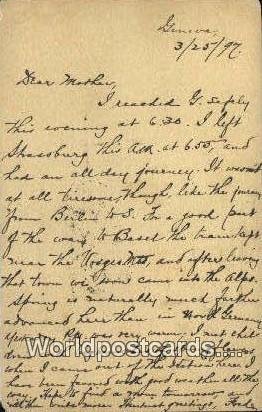 Geneva,
3/25/97.
Dear Mother,
I reached G. safely
this evening at 6.30. I left
Strassburg this A.M. at 6.55, and
had an all day journey. It wasn't
at all tiresome, though, like the journey
from to S. For a good part
of the way to Basel the train kept
near the Vosges Mts. and after leaving
that town we soon came into the Alps.
Spring is naturally much further
advanced here than in North Germany
day was very warm. I met chil-
dren
when I came out of the station here. I
have been favored with good weather all the
way. Hope to find a
with
Worldpostcards.com